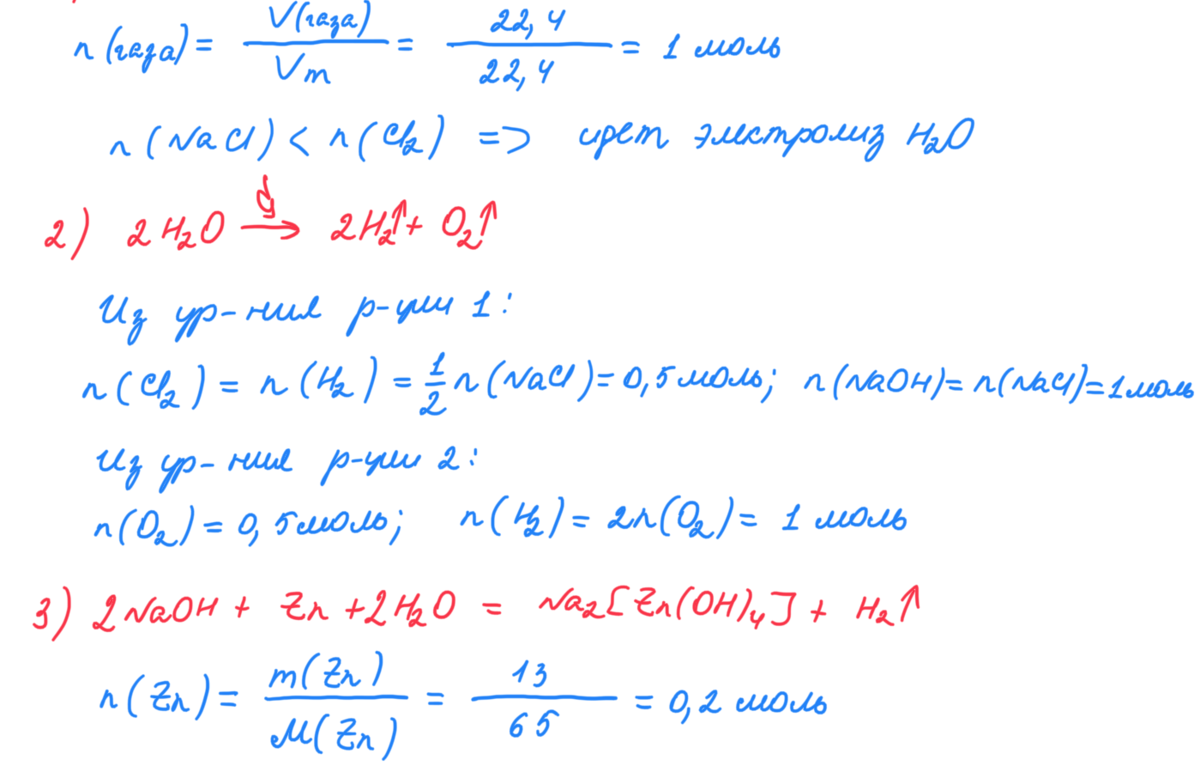 n(газа) = V(газа)/Vm = 22,4/22,4 = 1 моль
n(NaCl) < n(Cl₂) => идет электролиз H₂O
2) 2H₂O →(эл. ток) 2H₂↑ + O₂↑
Из ур-ния р-ции 1:
n(Cl₂) = n(H₂) = 1/2 n(NaCl) = 0,5 моль; n(NaOH) = n(NaCl) = 1 моль
Из ур-ния р-ции 2:
n(O₂) = 0,5 моль; n(H₂) = 2n(O₂) = 1 моль
3) 2NaOH + Zn + 2H₂O = Na₂[Zn(OH)₄] + H₂↑
n(Zn) = m(Zn)/M(Zn) = 13/65 = 0,2 моль